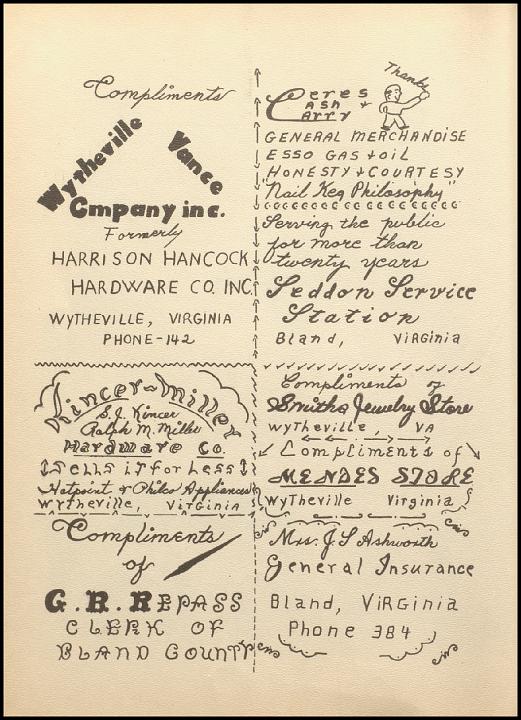 Compliments
Wytheville Vance
Cmpany inc.
Formerly
HARRISON HANCOCK
HARDWARE CO. INC.
WYTHEVILLE, VIRGINIA
PHONE-142
Kincer-Miller
S. J. Kincer
Ralph M. Miller
Hardware Co.
Sells it for Less
Hotpoint & Philco Appliances
Wytheville, Virginia
Compliments
of
G. R. REPASS
CLERK OF
BLAND COUNTY
Thanks
Ceres
Cash &
Carry
GENERAL MERCHANDISE
ESSO GAS + OIL
"HONESTY & COURTESY
Nail Keg Philosophy"
Serving the public
for more than
twenty years
Seddon Service
Station
Bland, Virginia
Compliments of
Smiths Jewelry Store
Wytheville, VA
Compliments of
MENDES STORE
Wytheville Virginia
Mrs. J. S Ashworth
General Insurance
Bland, Virginia
Phone 384